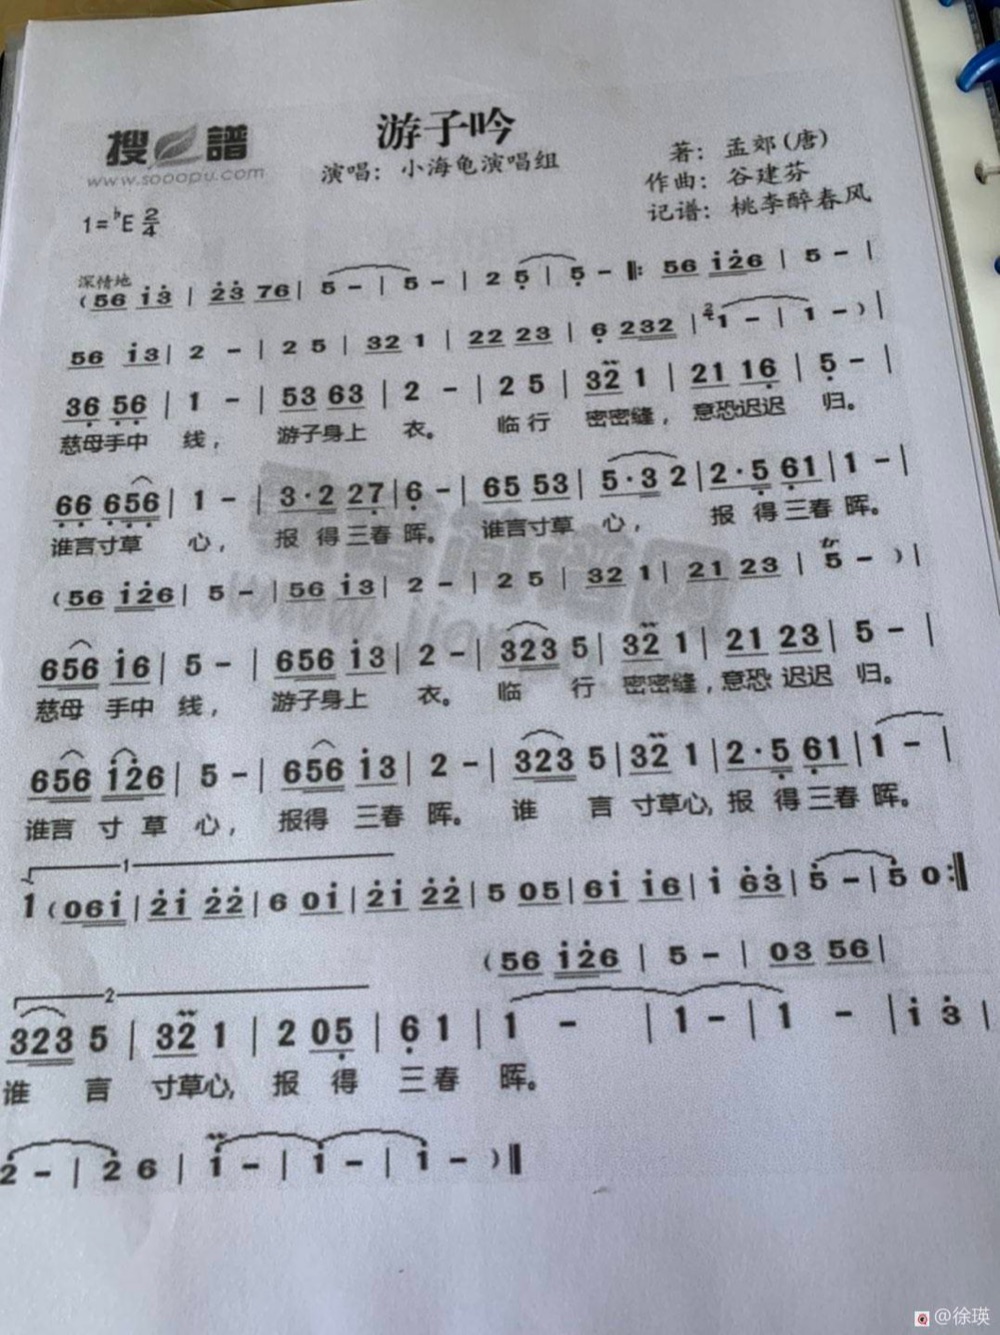 游子吟
搜 譜
www.sooopu.com
演唱：小海龟演唱组
著：孟郊(唐)
作曲：谷建芬
记谱：桃李醉春风
1=♭E 2/4
深情地
(56 i3 | 23 76 | 5 - | 5 - | 2 5 | 5 - ‖: 56 i26 | 5 - |
56 i3 | 2 - | 2 5 | 32 1 | 22 23 | 6 232 | 2/4 1 - | 1 - ) |
36 56 | 1 - | 53 63 | 2 - | 2 5 | 32 1 | 21 16 | 5 - |
慈母手中 线， 游子身上 衣。 临行 密密缝，意恐迟迟 归。
66 656 | 1 - | 3·2 27 | 6 - | 65 53 | 5·3 2 | 2·5 61 | 1 - |
谁言寸草 心， 报 得三春 晖。 谁言寸草 心， 报 得三春 晖。
(56 i26 | 5 - | 56 i3 | 2 - | 2 5 | 32 1 | 21 23 | tr 5 - ) |
656 i6 | 5 - | 656 i3 | 2 - | 323 5 | 32 1 | 21 23 | 5 - |
慈母 手中 线， 游子身上 衣。 临 行 密密缝，意恐 迟迟 归。
656 i26 | 5 - | 656 i3 | 2 - | 323 5 | 32 1 | 2·5 61 | 1 - |
谁言 寸草 心， 报得 三春 晖。 谁 言 寸草心，报 得三春 晖。
1
1 (06i | 2i 22 | 6 0i | 2i 22 | 5 05 | 6i i6 | i 63 | 5 - | 5 0 :‖
(56 i26 | 5 - | 03 56 |
2
323 5 | 32 1 | 2 05 | 6 1 | 1 - | 1 - | 1 - | i 3 |
谁 言 寸草心，报 得 三春 晖。
2 - | 2 6 | i - | i - | i - ) ‖
@徐瑛